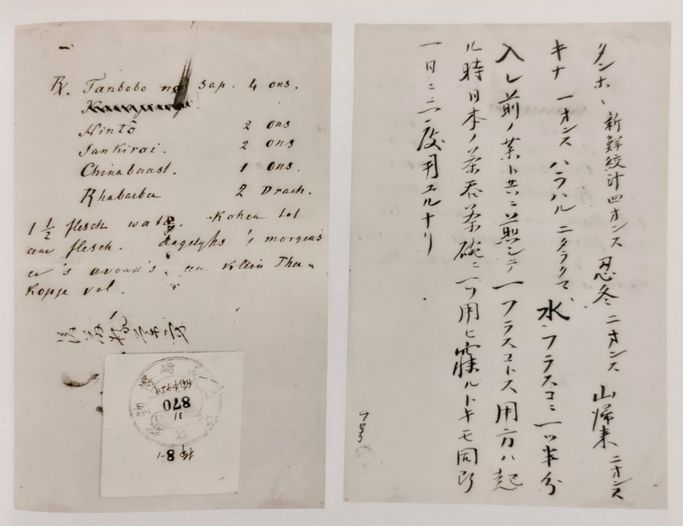 Rx. Tanbobo no sap. 4 ons.
Nintô 2 ons
Sankirai. 2 ons
Chinabaast. 1 ons.
Rhabarber 2 Drach.
1 1/2 flesch water. Koken tot
eene flesch. dagelyks 's morgens
en 's avonds, een klein Thee-
kopje vol.
870
タンホヽ新鮮絞汁四オンス 忍冬 ニオンス 山帰来 ニオンス
キナ 一オンス ハラハル ニタラクマ 水フラスコニ一ツ半分
入レ前ノ薬ト共ニ煎シテ一フラスコトス 用方ハ起
ル時日本ノ茶呑茶碗ニ一ツ用ヒ寐ルトキモ同断
一日ニ二度用ユルナリ